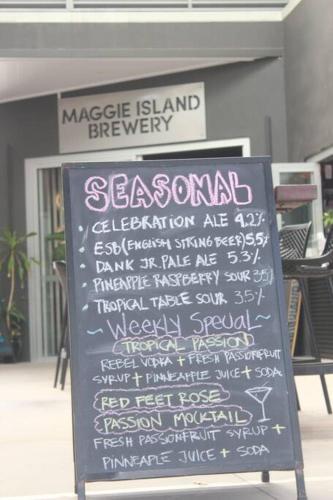 MAGGIE ISLAND
BREWERY
SEASONAL
• CELEBRATION ALE 4.2%
• ESB (ENGLISH STRING BEER) 5.5%
• DANK JR. PALE ALE 5.3%
• PINEAPPLE RASPBERRY SOUR 3.5%
• TROPICAL TABLE SOUR 3.5%
~ Weekly Special ~
TROPICAL PASSION
REBEL VODKA + FRESH PASSIONFRUIT
SYRUP + PINNEAPPLE JUICE + SODA
RED FEET ROSE
PASSION MOCKTAIL
FRESH PASSIONFRUIT SYRUP +
PINNEAPLE JUICE + SODA